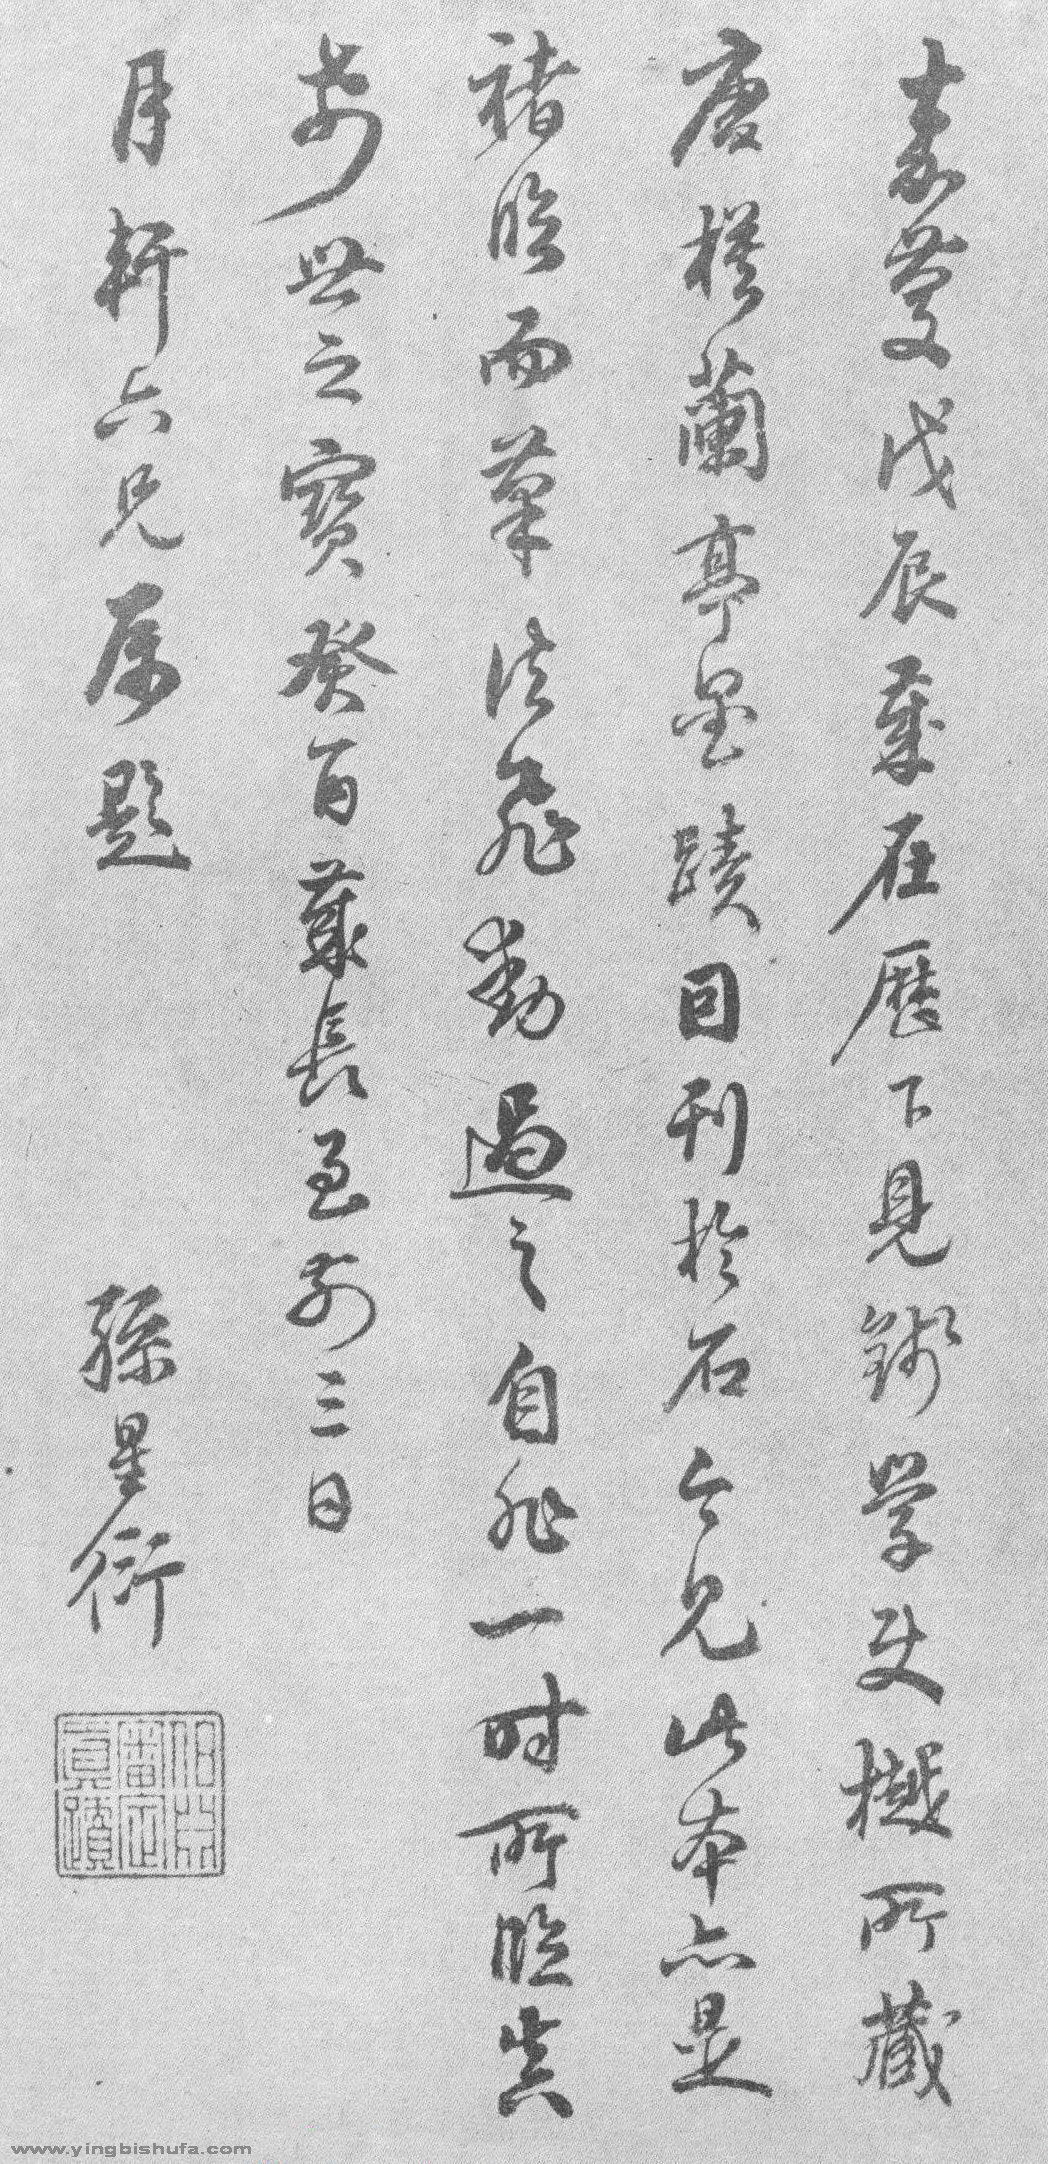 嘉慶戊辰歲在曆下見錢學使樾所藏
唐橅蘭亭墨蹟因刊於石今見此本亦是
褚臨而筆法飛動過之自非一時所臨真
希世之寶癸酉歲長至前三日
月軒六兄屬題
孫星衍
伯淵審定真蹟
www.yingbishufa.com